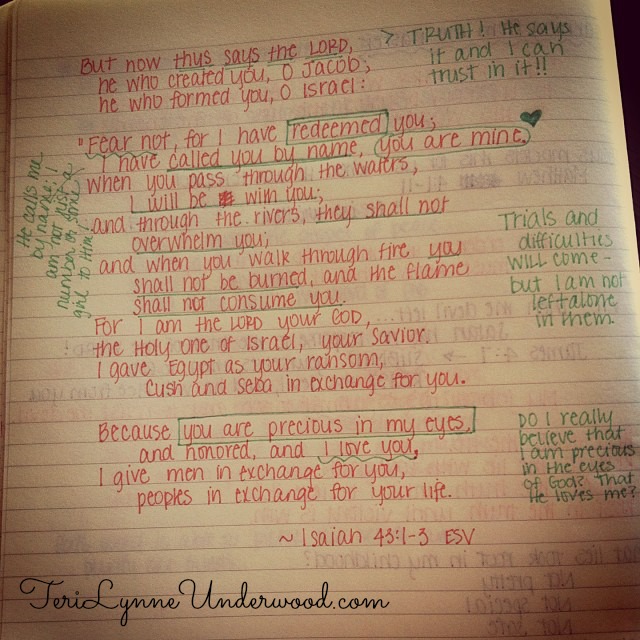 But now thus says the LORD,
he who created you, O Jacob;
he who formed you, O Israel:
> TRUTH! He says
it and I can
trust in it!!
"Fear not, for I have redeemed you;
I have called you by name, you are mine.
when you pass through the waters,
I will be with you;
and through the rivers, they shall not
overwhelm you;
and when you walk through fire you
shall not be burned, and the flame
shall not consume you.
For I am the LORD your GOD,
the Holy one of Israel, your Savior.
I gave Egypt as your ransom,
Cush and Seba in exchange for you.
He calls me
by name; I
am not just a
number or some
girl to Him!
Trials and
difficulties
WILL come -
but I am not
left alone
in them.
Because you are precious in my eyes,
and honored, and I love you,
I give men in exchange for you,
peoples in exchange for your life.
DO I really
believe that
I am precious
in the eyes
of God? That
He loves me?
~ Isaiah 43:1-3 ESV
TeriLynneUnderwood.com